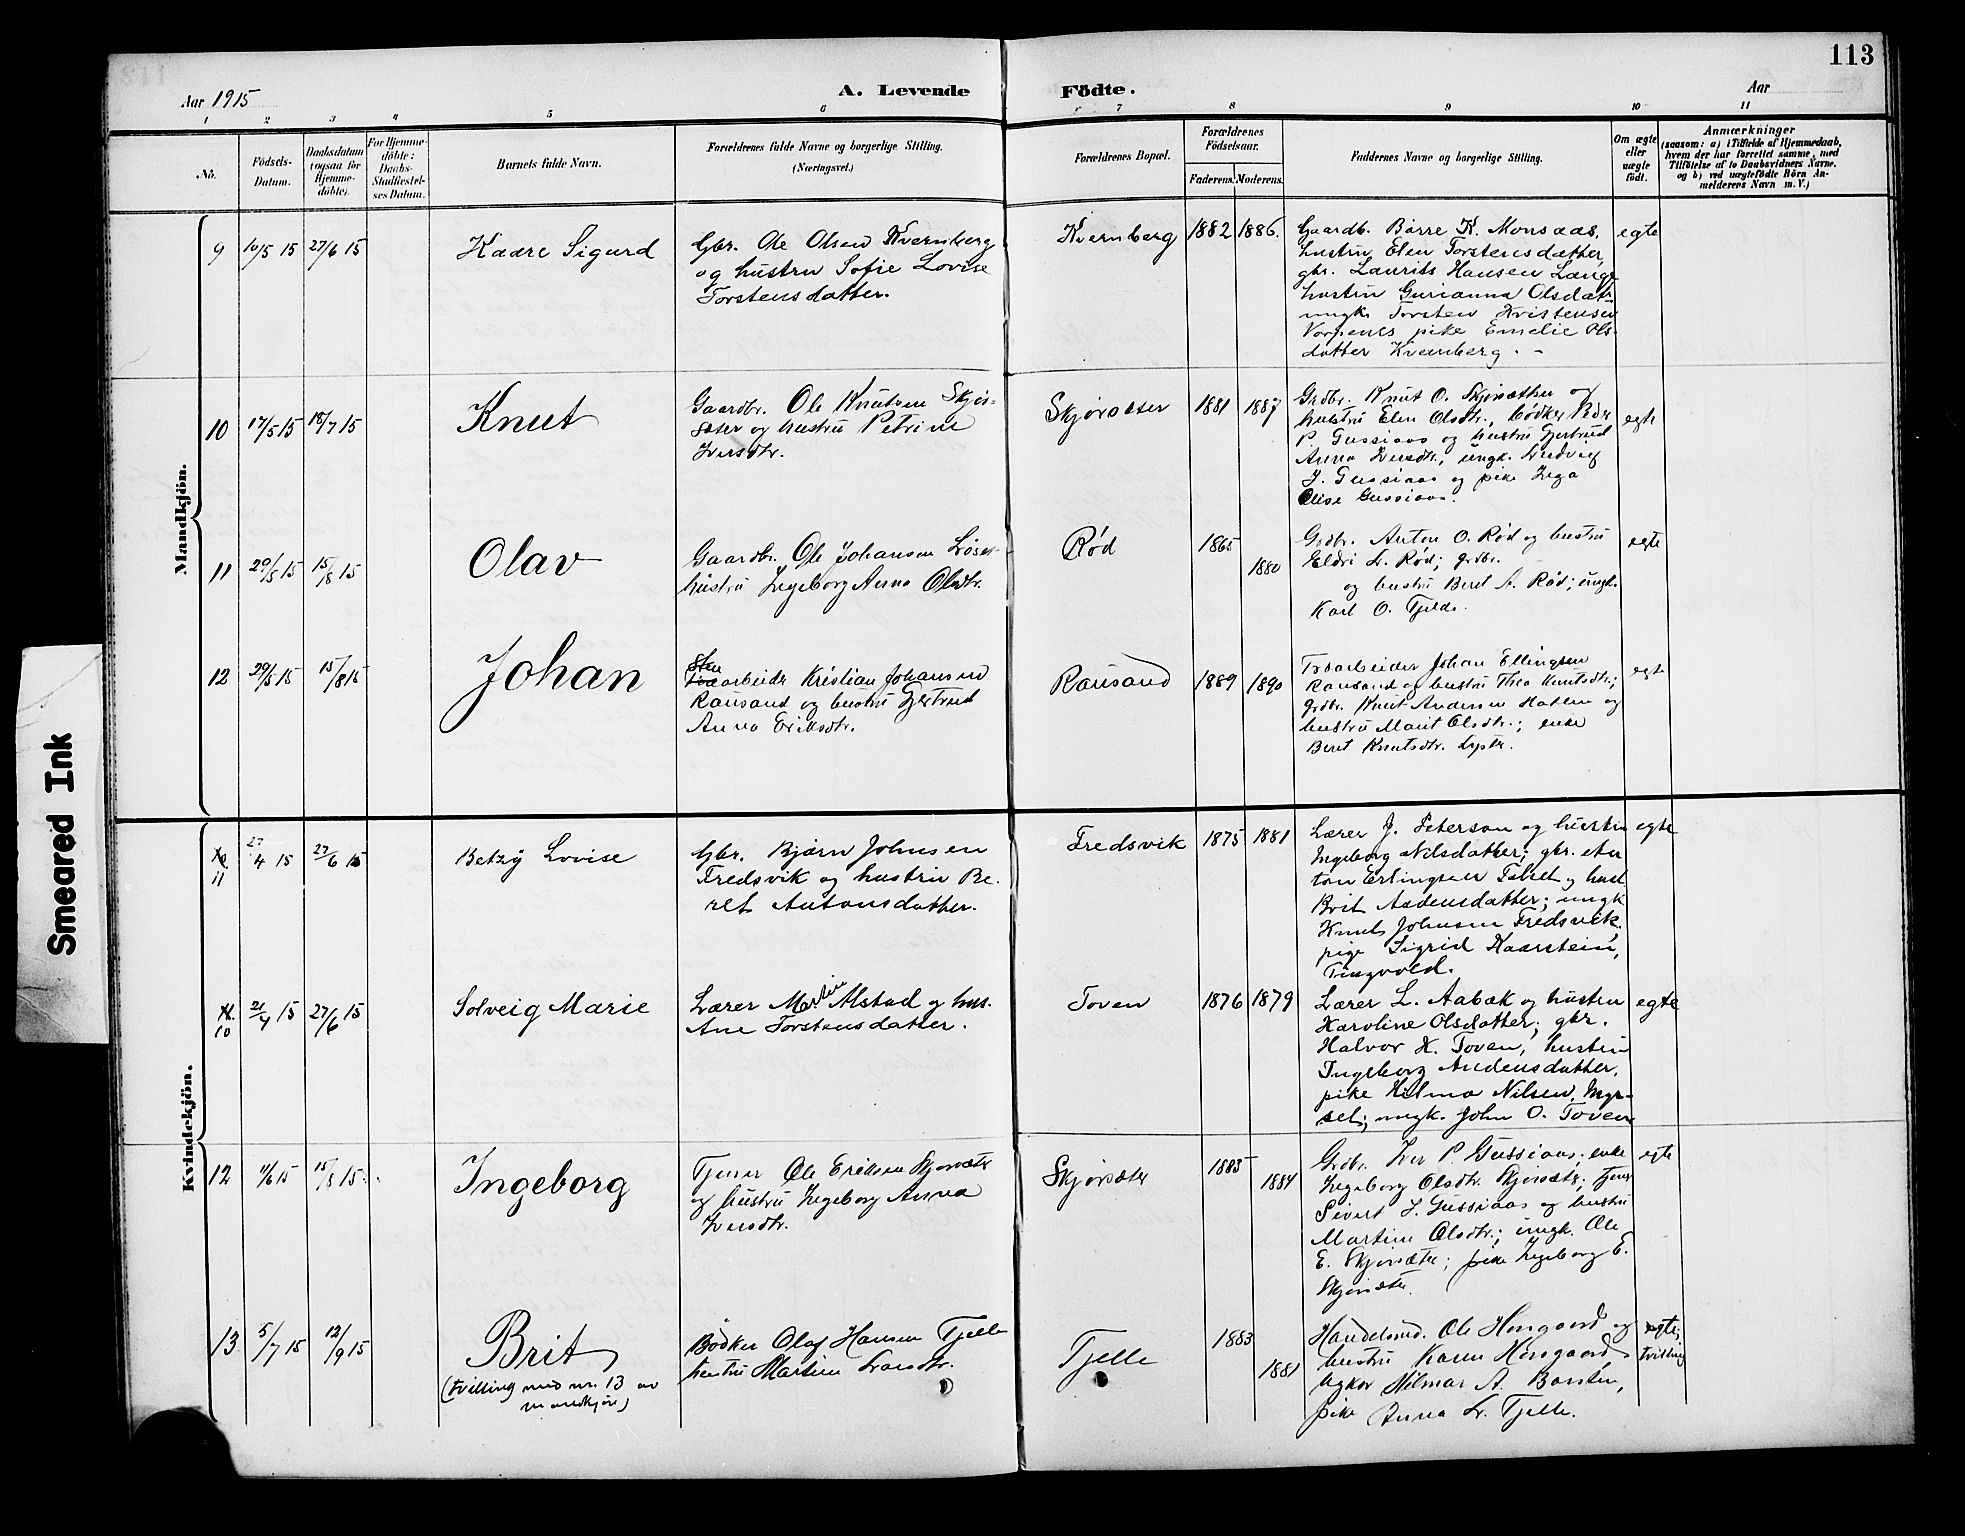 113
Aar 1915
A. Levende
Födte.
Aar
1 2 3 4 5 6 7 8 9 10 11
No.
Födsels-
Datum.
Daabsdatum
(ogsaa for
Hjemme-
döbte).
For Hjemme-
döbte:
Daabs-
Stadfæstel-
ses Datum.
Barnets fulde Navn.
Forældrenes fulde Navne og borgerlige Stilling.
(Næringsvei.)
Forældrenes Bopæl.
Forældrenes
Födselsaar.
Faderens. Moderens.
Faddernes Navne og borgerlige Stilling.
Om ægte
eller
uægte
födt.
Anmærkninger
(saasom: a) i Tilfælde af Hjemmedaab,
hvem der har forrettet samme, med
Tilföielse af to Daabsvidners Navne,
og b) ved uægtefödte Börn An-
melderens Navn m. V.)
Mandkjön.
9 10/5 15 27/6 15
Kaare Sigurd
Gbr. Ole Olsen Kvernberg
og hustru Sofie Lovise
Torstensdatter.
Kvernberg
1882 1886.
Gaardb. Børre K. Monsaas,
hustru Elen Torstensdatter,
gbr. Laurits Hansen Lange
hustru Gurianna Olsdatr
ungk. Torsten Kristensen
Vorpenes pike Emelie Ols-
datter Kvernberg. -
egte
10 17/5 15 18/7 15
Knut
Gaardbr. Ole Knutsen Skjør-
sæter og hustru Petrine
Iversdtr.
Skjørsæter
1881 1887
Grdbr. Knut O. Skjørsæther og
hustru Elen Olsdtr., bødker Peder
P. Gussiaas og hustru Gjertrud
Anna Iversdtr., ungk. Ludvig
J. Gussiaas og pike Inga
Elise Gussiaas.
egte
11 20/5 15 15/8 15
Olav
Gaardbr. Ole Johansen
hustru Ingeborg Anna Olsdtr.
Rød
1865
1880
Grdbr. Anton O. Rød og hustru
Eldri L. Rød; grdbr.
og hustru Beret A. Rød; ungk.
Karl O. Tjelde.
egte
12 29/5 15 15/8 15
Johan
Sten
arbeider Kristian Johansen
Rausand og hustru Gjertrud
Anna Eriksdtr.
Rausand
1889 1890
Træarbeider Johan Ellingsen
Rausand og hustru Thea Knutsdtr.;
grdbr. Knut Andersen Hatlen og
hustru Marit Olsdtr.; enke
Beret Knutsdtr.
egte
Kvindekjön.
11 27/4 15 27/6 15
Betzy Lovise
Gbr. Bjørn Johnsen
Fredsvik og hustru Be-
ret Antonsdatter.
Fredsvik
1875 1881
Lærer J. Peterson og hustru
Ingeborg Nilsdatter; gbr. An
ton Erlingsen Talset og hust
Brit Andensdatter; ungk
Knut Johnsen Fredsvik,
pige Sigrid Kaarstein,
Tingvold.
egte
10 21/4 15 27/6 15
Solveig Marie
Lærer Martin Alstad og hus.
Ane Torstensdatter.
Toven
1876 1879
Lærer L. Aabak og hustru
Karoline Olsdatter; gbr.
Halvor H. Toven, hustru
Ingeborg Andensdatter,
pike Hilma Nilsen, Myr-
set; ungk. John O. Toven
egte
12 1/6 15 15/8 15
Ingeborg
Tjener Ole Eriksen Skjørsæter
og hustru Ingeborg Anna
Iversdtr.
Skjørsæter
1885
1884
Grdbr. Iver P. Gussiaas; enke
Ingeborg Olsdtr. Skjørsæter; tjener
Sivert J. Gussiaas og hustru
Martine Olsdtr.; ungk. Ole
E. Skjørsæter; pike Ingeborg E.
Skjørsæter.
egte
13 5/7 15 12/9 15
Brit
(tvilling med nr. 13 av
mandkjøn)
Bødker Olaf Hansen Tjelle
hustru Martine Larsdtr.
Tjelle
1883
1881
Handelsmd. Ole Horsgaard og
hustru Karen Horsgaard,
Hilmar A.
pike Anna L. Tjelle.
egte;
tvilling
Smeared Ink